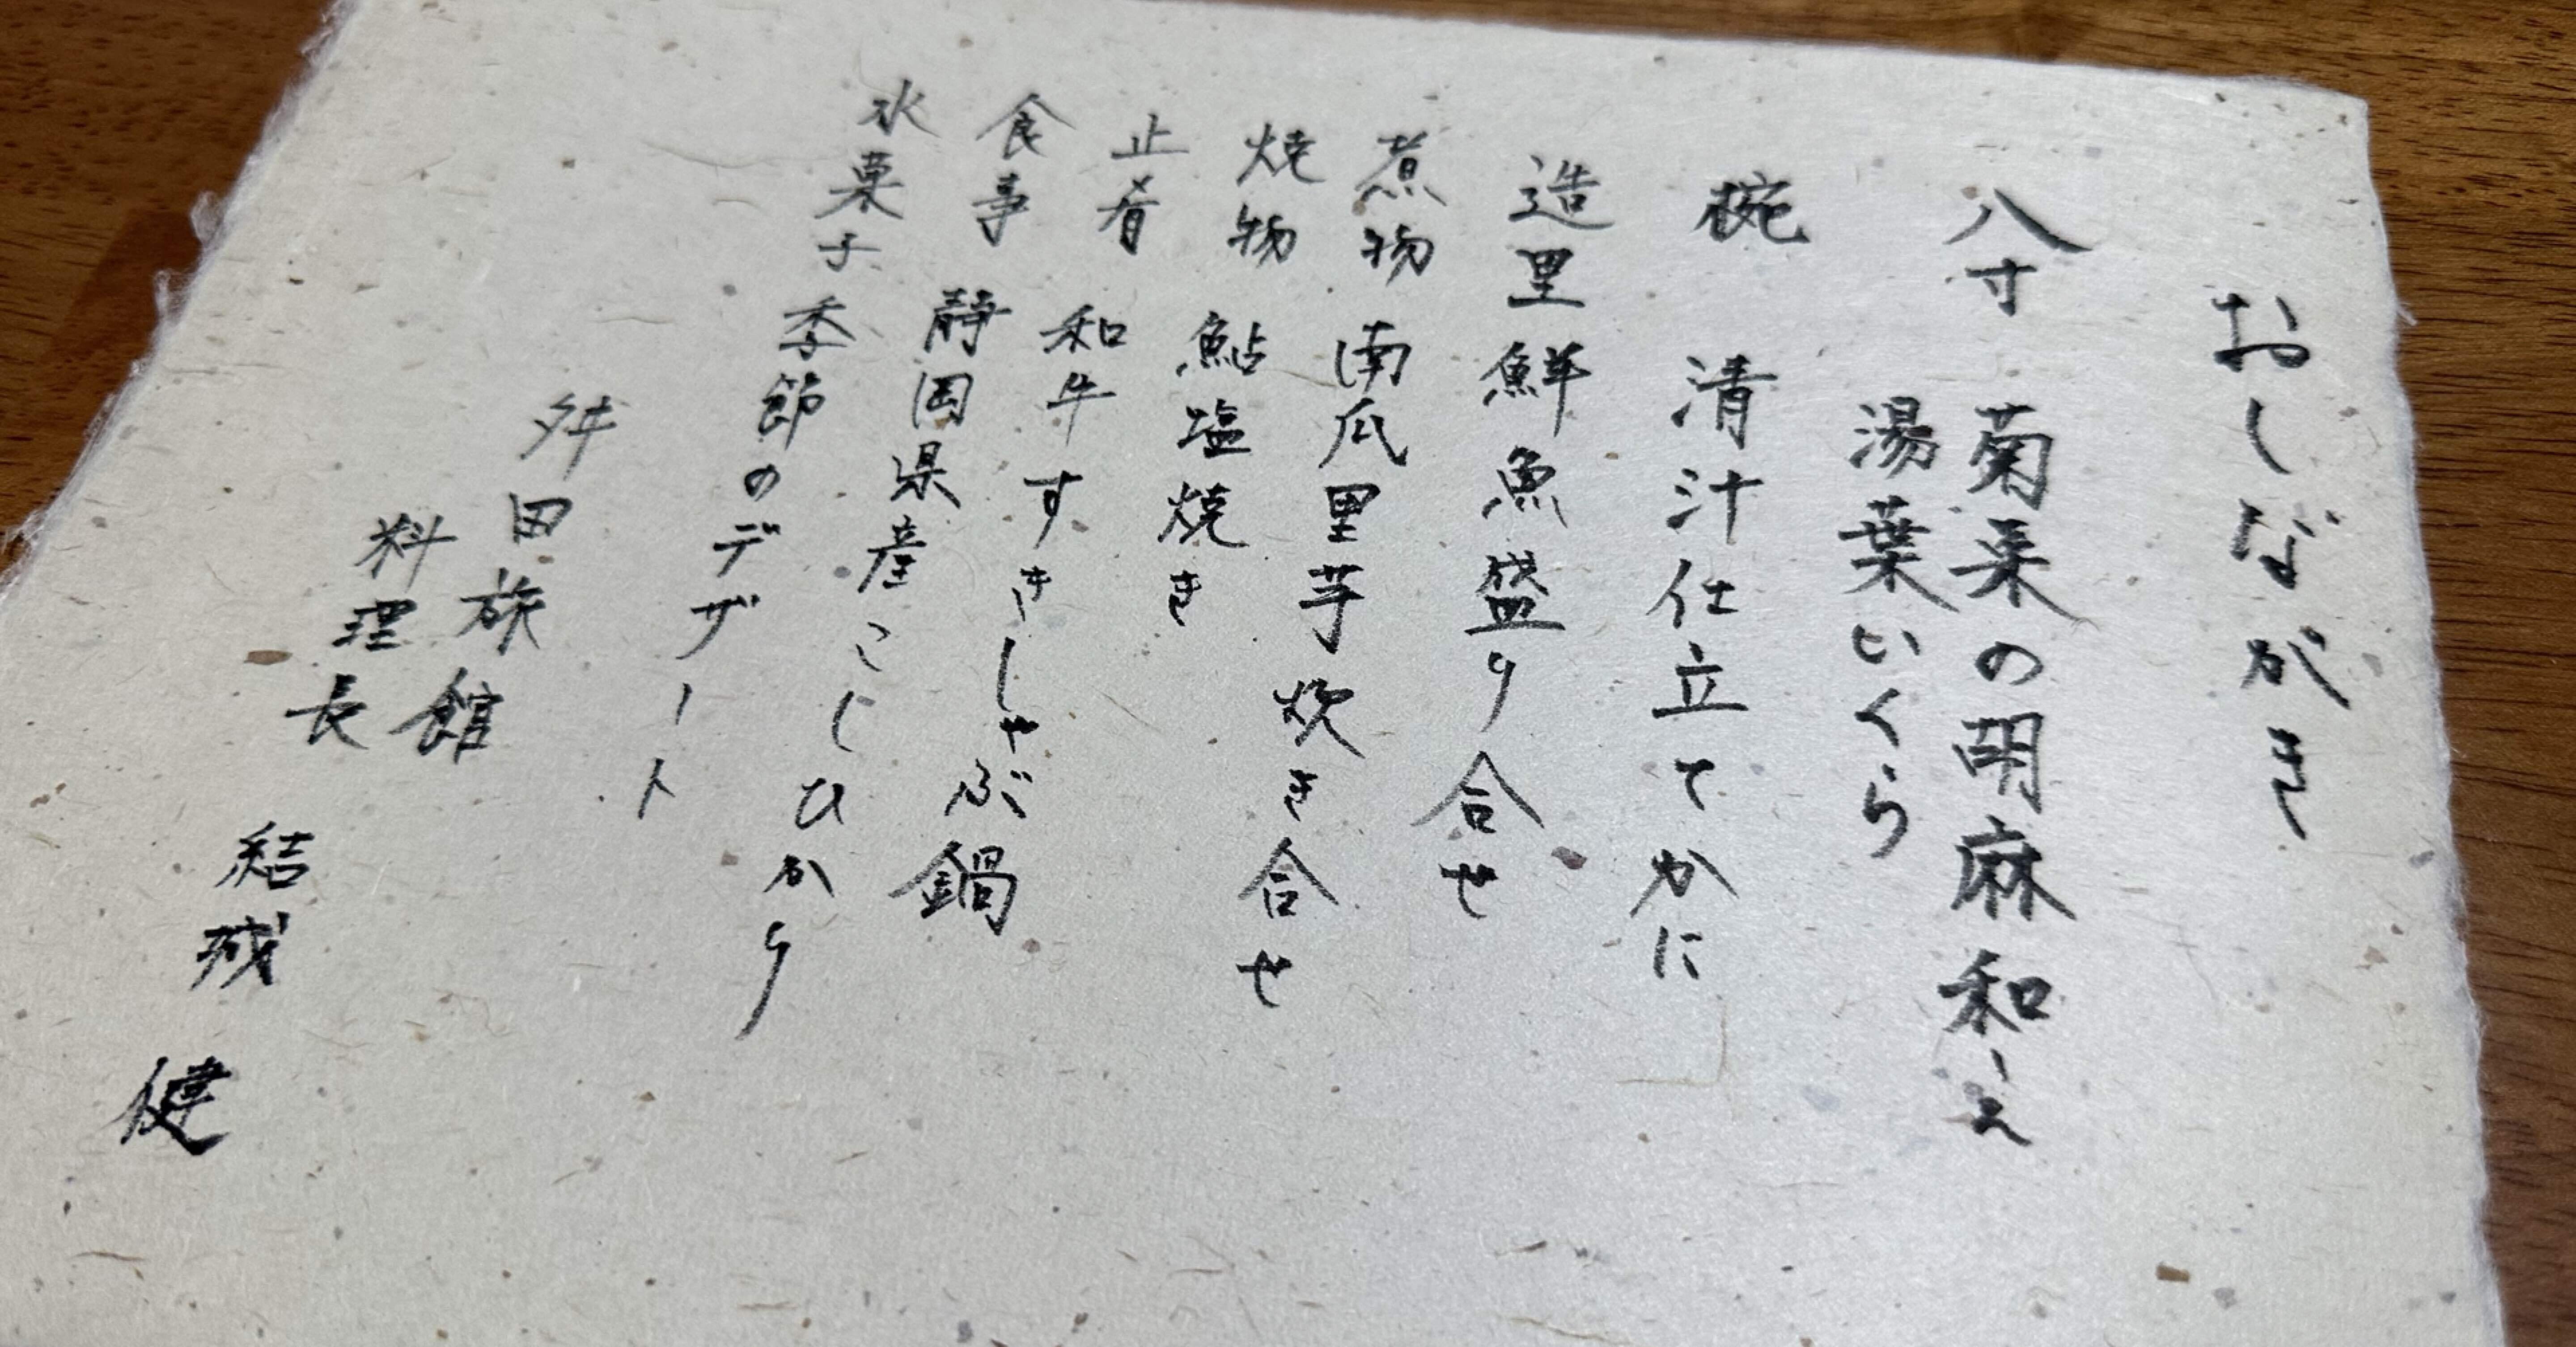 おしながき
八寸 菊菜の胡麻和え
湯葉いくら
椀 清汁仕立てかに
造里 鮮魚盛り合せ
煮物 南瓜里芋炊き合せ
焼物 鮎塩焼き
止肴 和牛すきしゃぶ鍋
食事 静岡県産こしひかり
水菓子 季節のデザート
舛田旅館
料理長 結城 健